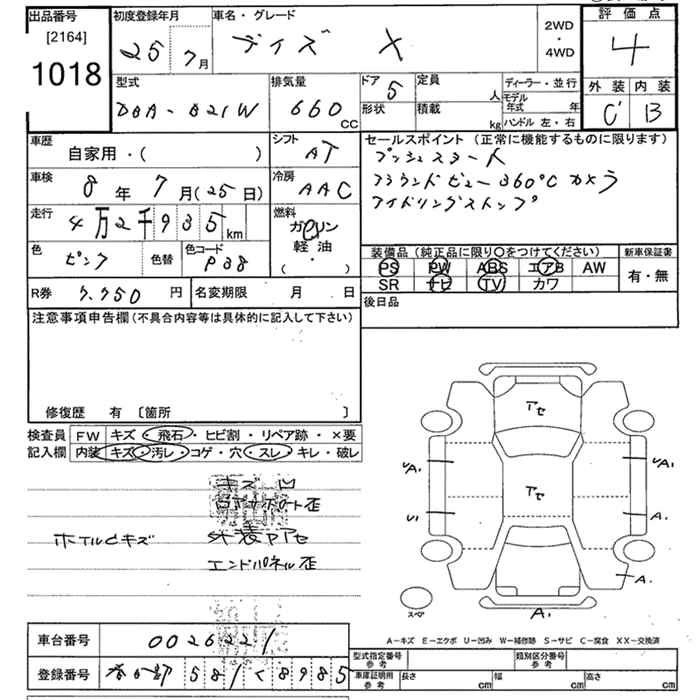 出品番号
[2164]
1018
初度登録年月
25 7月
車名・グレード
デイズ X
2WD・4WD
評価点
4
外装 内装
C B
型式
DBA-B21W
排気量
660 CC
ドア 5
形状
定員 人
積載 kg
ディーラー・並行
モデル年式 年
ハンドル 左・右
車歴
自家用・( )
車検
8年 7月(25日)
走行
4万2千935km
色
ピンク
色替
色コード
P38
シフト
AT
冷房
AAC
燃料
ガソリン
軽油・
( ・ )
セールスポイント (正常に機能するものに限ります)
プッシュスタート
アラウンドビュー360°Cカメラ
アイドリングストップ
装備品(純正品に限り〇をつけてください)
PS PW ABS エアB AW
SR ナビ TV カワ
新車保証書
有・無
R券 7.750円
名変期限 月 日
後日品
注意事項申告欄(不具合内容等は具体的に記入して下さい)
修復歴 有 〔箇所 〕
検査員記入欄
FW キズ・飛石・ヒビ割・リペア跡・×要
内装 キズ・汚レ・コゲ・穴・スレ・キレ・破レ
キズ 凹
コアサポート歪
ホイルCキズ
外装アセ
エンドパネル歪
アセ
アセ
A1
U1
A1
A1
A1
スペア
A1
A-キズ E-エクボ U-凹み W-補修跡 S-サビ C-腐食 XX-交換済
車台番号
0026221
登録番号
581 く 8985
型式指定番号 参考
類別区分番号 参考
車庫証明用 参考
長さ cm
幅 cm
高さ cm